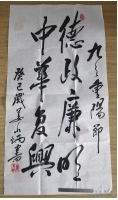 九々重陽節
德政廉明
中華复興
癸巳歲
炳書